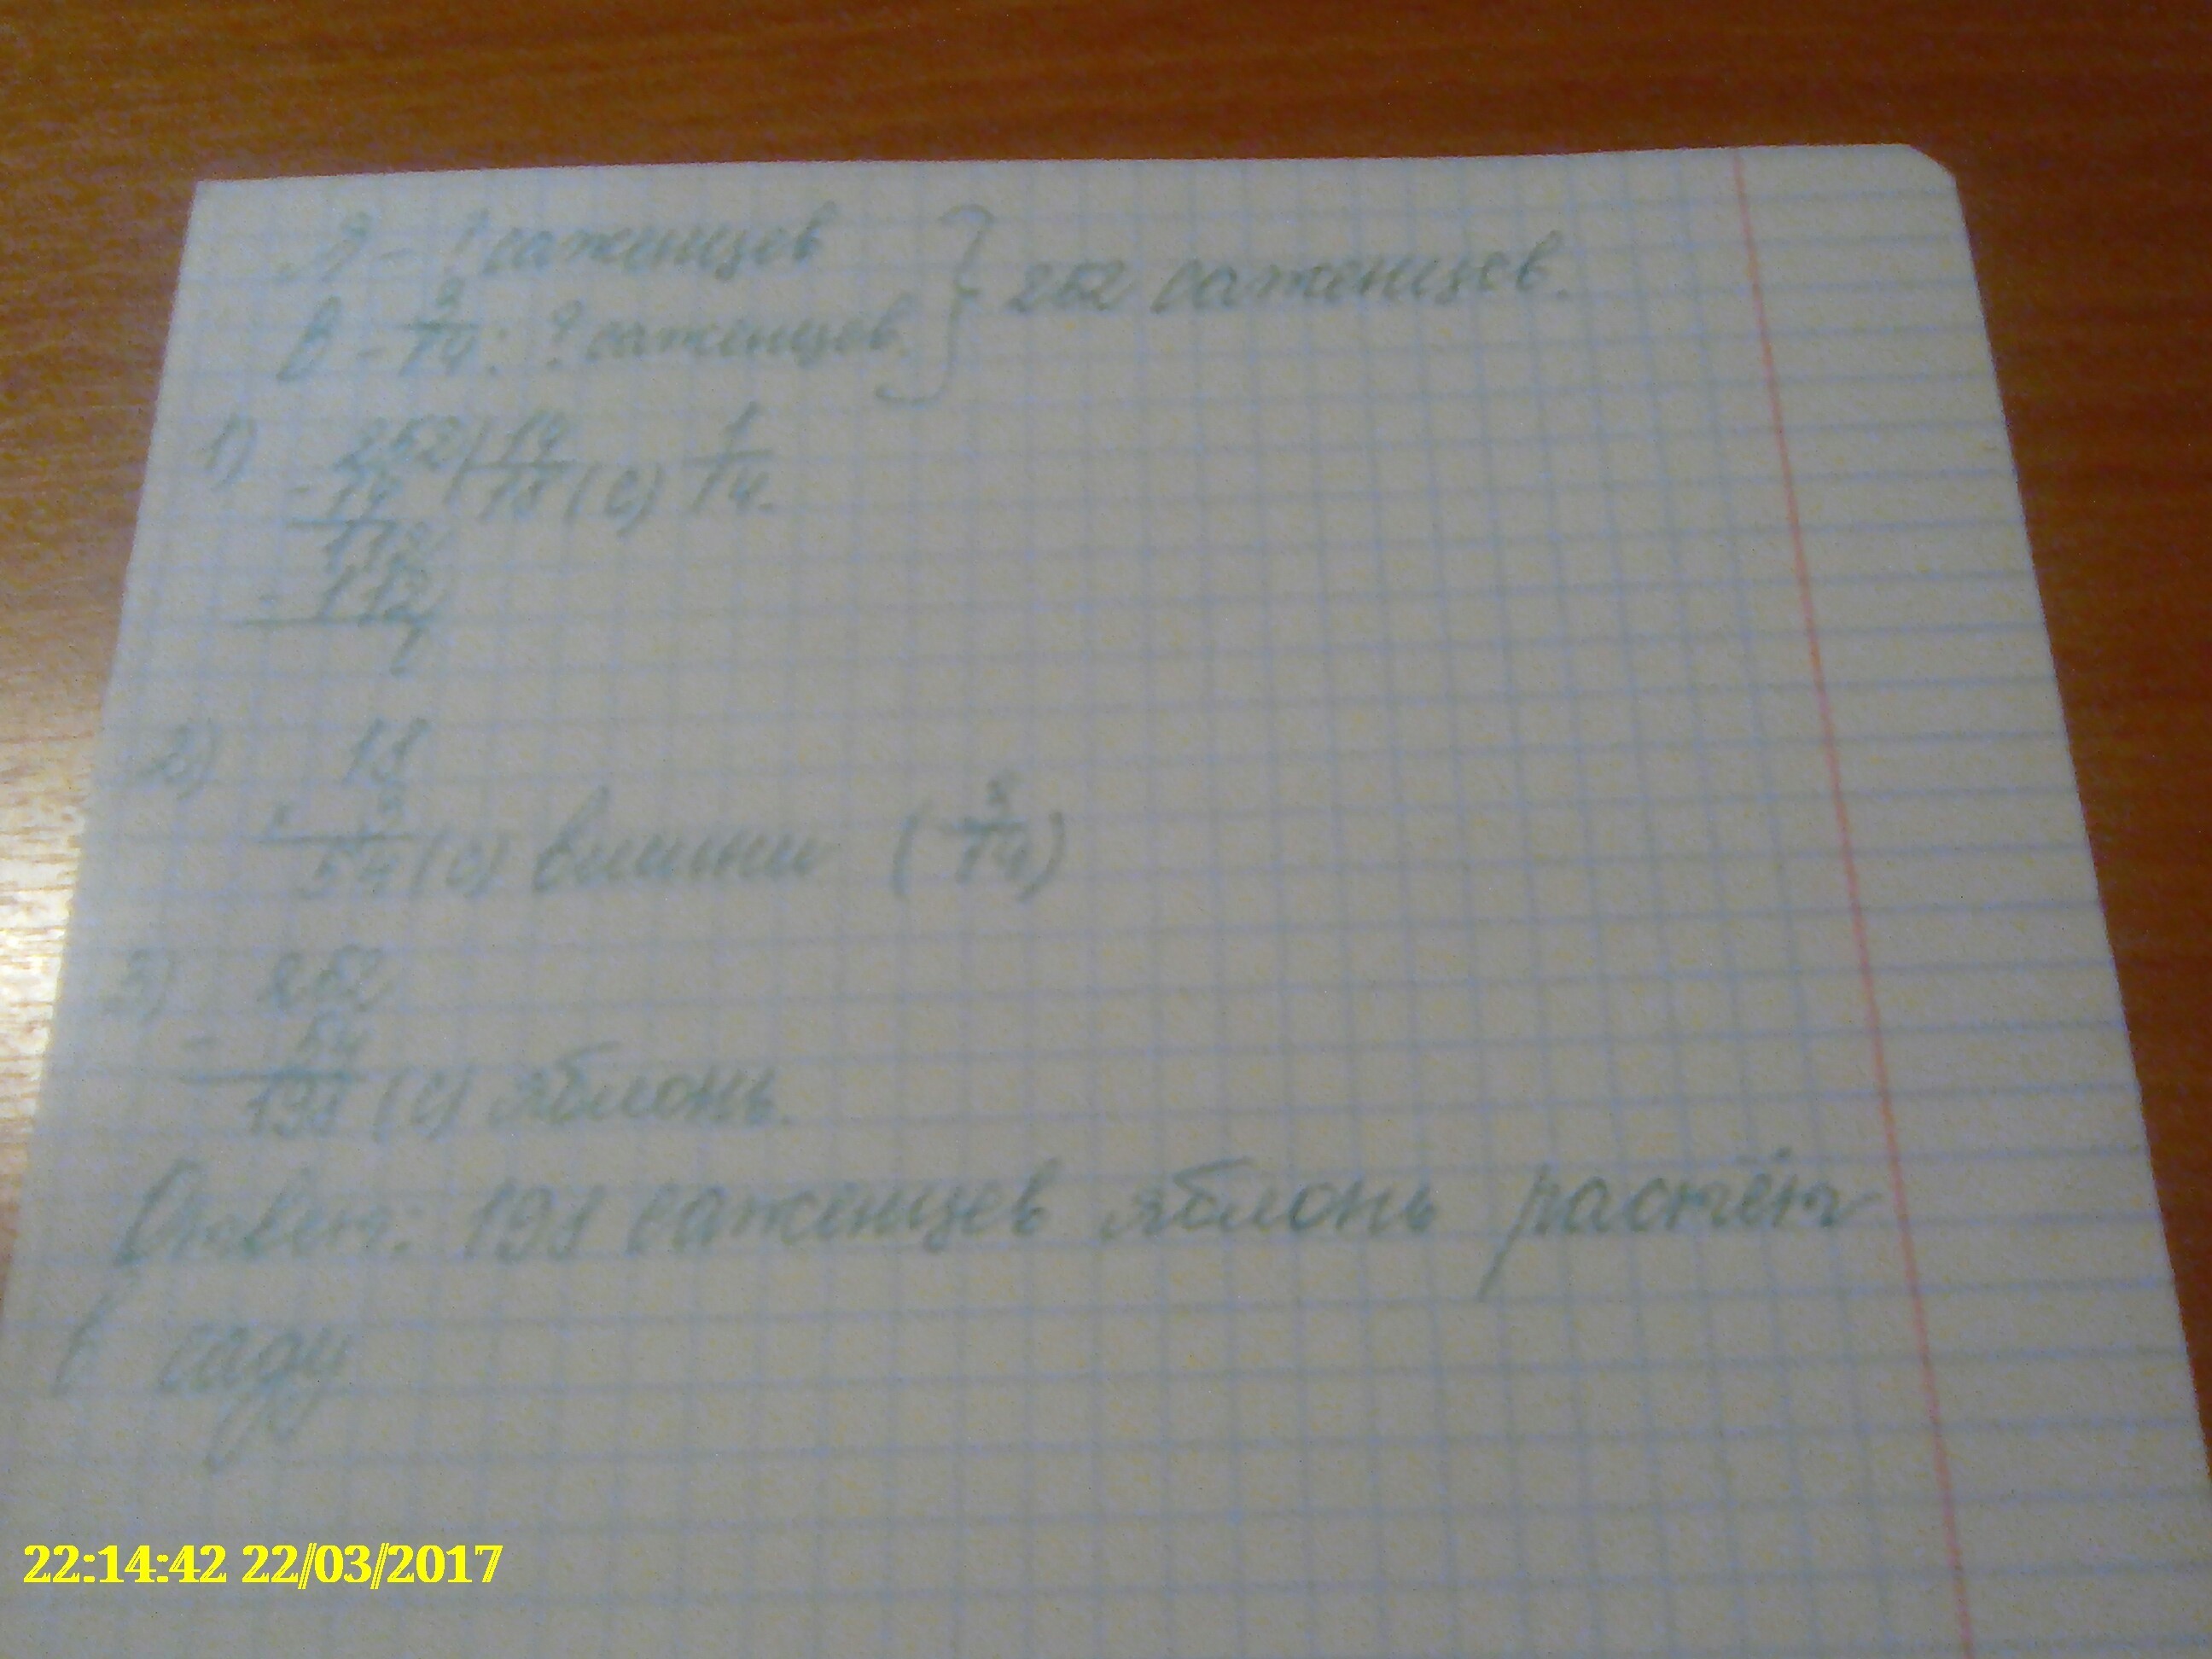 Я - ? саженцев
В - 3/14: ? саженцев.
} 252 саженцев.
1) 252 | 14
- 14 | 18 (с) 1/14.
112
- 112
0
2) 18
· 3
54 (с) вишни (3/14)
3) 252
- 54
198 (с) яблонь.
Ответ: 198 саженцев яблонь растёт
в саду
22:14:42 22/03/2017